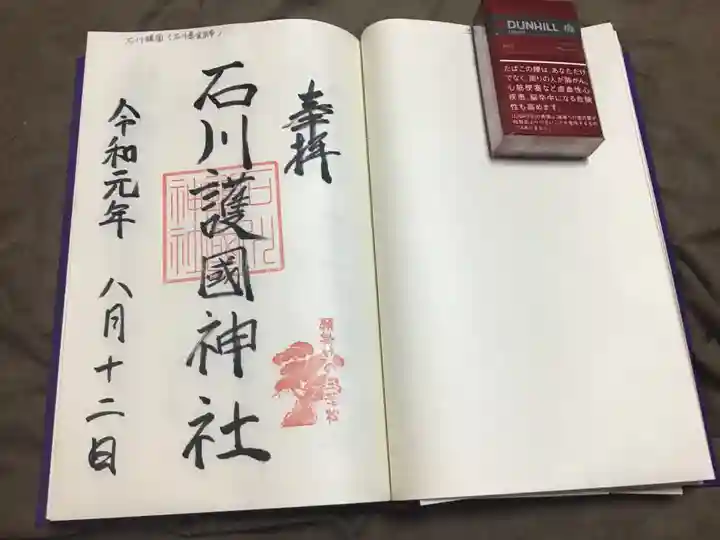 奉拝
石川護國神社
令和元年 八月十二日
石川
神社
DUNHILL
たばこの煙は、あなただけ
でなく、周りの人が肺がん、
心筋梗塞など虚血性心
疾患、脳卒中になる危険
性も高めます。